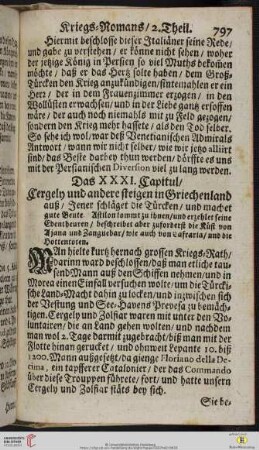 Kriegs-Romans/2.Theil. 797
Hiermit beschlosse dieser Italiäner seine Rede/
und gabe zu verstehen/ er könne nicht sehen/ woher
der jetzige König in Persien so viel Muths bekom̃en
möchte/ daß er das Hertz solte haben/ dem Groß-
Türcken den Krieg anzukündigen/sintemahlen er ein
Herꝛ/ der in dem Frauenzimmer erzogen/ in den
Wollüsten erwachsen/ und in der Liebe gantz ersoffen
wäre/ der auch noch niemahls mit zu Feld gezogen/
sondern den Krieg mehr hassete/ als den Tod selber.
So sehe ich wol/ war deß Venetianischen Admirals
Antwort/ wann wir nicht selber/ wie wir jetzo alliirt
sind/ das Beste darbey thun werden/ dörffte es uns
mit der Persianischen Diversion viel zu lang werden.
Das XXXI. Capitul/
Cergely und andere steigen in Griechenland
auß/ Jener schläget die Türcken/ und machet
gute Beute. Astilon kommt zu ihnen/ und erzehlet seine
Ebentheuren/ beschreibet aber zuforderst die Küst von
Ajana und Zanguebar/ wie auch von Cafraria/ und die
Hottentoten.
MAn hielte kurtz hernach grossen Kriegs-Rath/
darinn ward beschlossen/ daß man etliche tau-
send Mann auß den Schiffen nehmen/ und in
Morea einen Einfall versuchen wolte/ um die Türcki-
sche Land-Macht dahin zu locken/ und inzwischen sich
der Vestung und See-Havens Prevesa zu bemäch-
tigen. Cergely und Zolfiar waren mit unter den Vo-
luntairen/ die an Land gehen wolten/ und nachdem
man wol 2. Tage darmit zugebracht/ biß man mit der
Flotte hinan gerucket/ und ohnweit Lepante 10. biß
1200. Mann außgesetzt/ da gienge Floriano della De-
cima, ein tapfferer Catalonier/ der das Commando
über diese Trouppen führete/ fort/ und hatte unsern
Cergely und Zolfiar stäts bey sich.
Sie be-